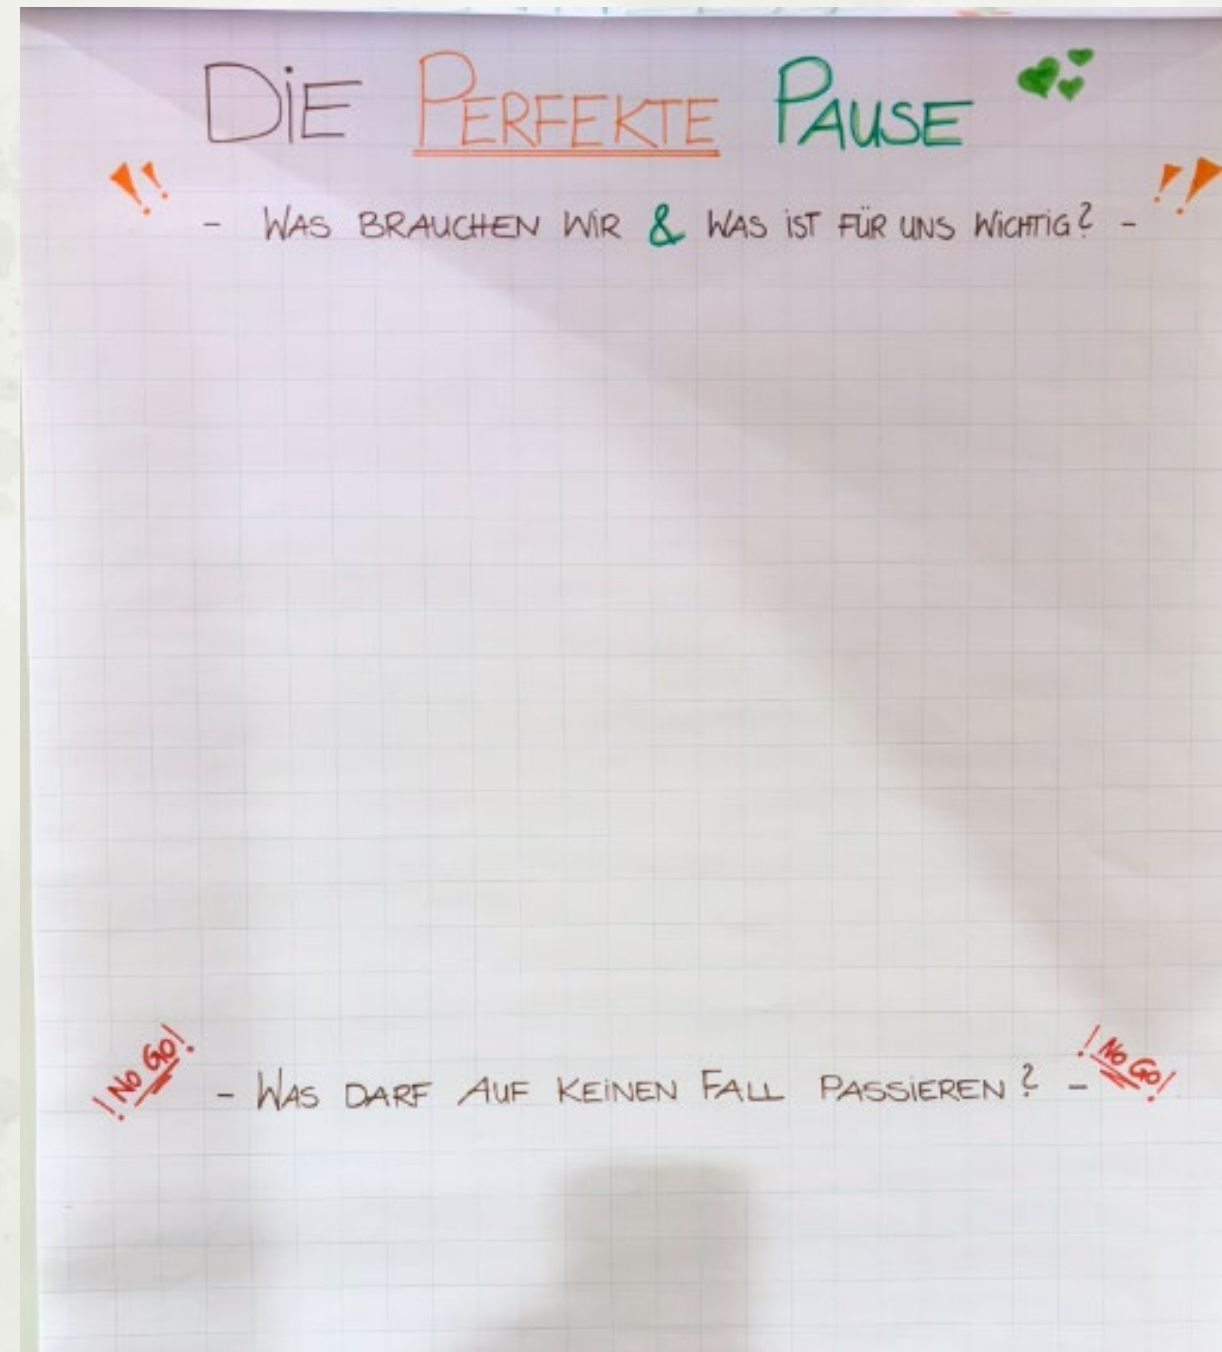 DiE PERFEKTE PAUSE
!! - WAS BRAUCHEN WiR & WAS iST FÜR UNS WiCHTiG? - !!
! No Go! - WAS DARF AUF KEiNEN FALL PASSiEREN? - ! No Go!